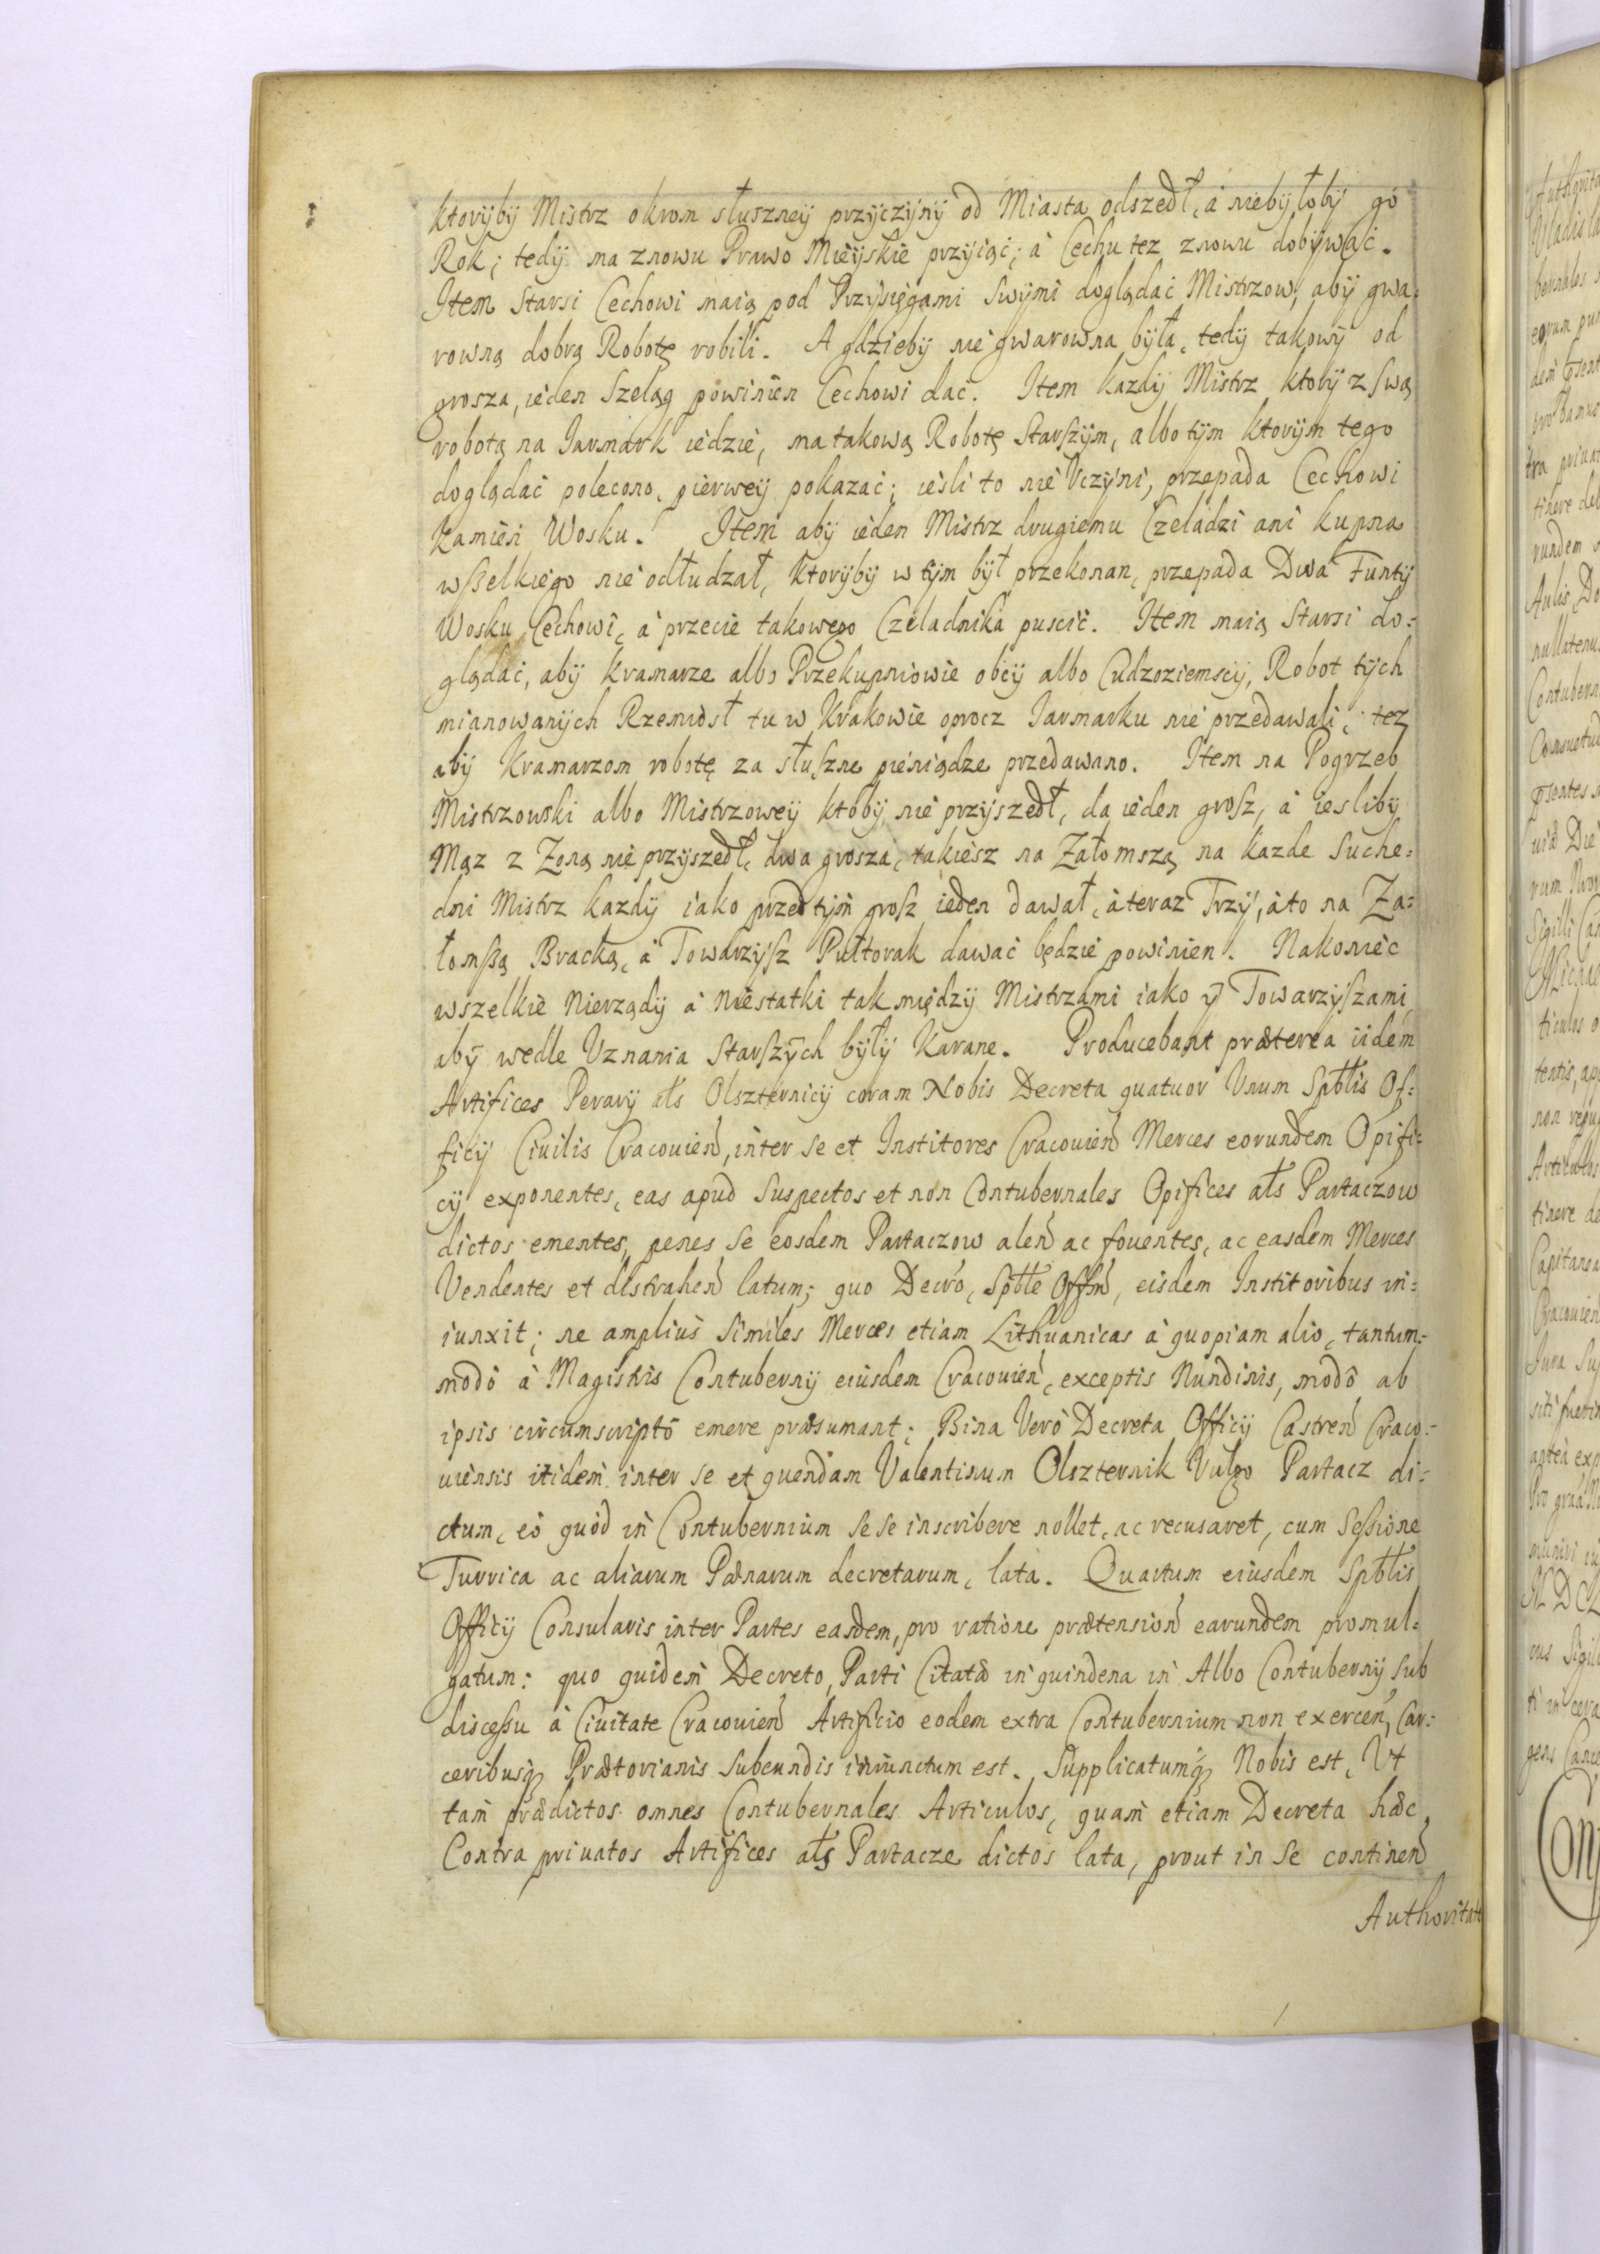 ktoryby Mistrz okrom słuszney przyczyny od Miasta odszedł, à niebyłoby go
Rok; tedy ma znowu Prawo Mieyskie przyiąć; à Cechu tez znowu dobywać.
Item Starsi Cechowi maią pod Przysięgami swymi doglądać Mistrzow, aby gwa:
rowną dobrą Robotę robili. A gdzieby nie gwarowna była, tedy takowy od
grosza, ieden Szeląg powinien Cechowi dać. Item kazdy Mistrz ktory z swą
robotą na Iarmark iedzie, ma takową Robotę Starszym, albo tym ktorym tego
doglądać polecono, pierwey pokazać; iesli to nie Vczyni, przepada Cechowi
kamień Wosku. Item aby ieden Mistrz drugiemu Czeladzi ani kupna
wszelkiego nie odłudzał, ktoryby w tym był przekonan, przepada Dwa Funty
Wosku Cechowi, à przecie takowego Czeladnika puscić. Item maią Starsi do:
glądać, aby kramarze albo Przekupniowie obcy albo Cudzoziemscy, Robot tych
mianowanych Rzemiosł tu w Krakowie oprocz Iarmarku nie przedawali, tez
aby Kramarzom robotę za słuszne pieniądze przedawano. Item na Pogrzeb
Mistrzowski albo Mistrzowey ktoby nie przyszedł, da ieden grosz, à iesliby
Mąz z Zoną nie przyszedł, dwa grosza, takiesz na Załomszą na kazde Suche:
dni Mistrz kazdy iako przed tym grosz ieden dawał, à teraz Trzy, à to na Za:
łomszą Bracką, à Towarzysz Pułtorak dawać będzie powinien. Nakoniec
wszelkie Nierządy à Niestatki tak między Mistrzami iako y Towarzyszami
aby wedle Vznania Starszych były karane. Producebant præterea iidem
Artifices Perary als Olszternicy coram Nobis Decreta quatuor Vnum Spblis Of:
ficy Ciuilis Cracouien, inter se et Institores Cracouien Merces eorundem Opifi:
cy exponentes, eas apud suspectos et non Contubernales Opifices als Partaczow
dictos ementes, penes se eosdem Partaczow alen ac fouentes, ac easdem Merces
Vendentes et distrahen latum; quo Decro, Spble Offm, eisdem Institoribus in:
iunxit; ne amplius similes Merces etiam Lithuanicas à quopiam alio, tantum:
modò à Magistris Contuberny eiusdem Cracouien, exceptis Nundinis, modò ab
ipsis circumscripto emere præsumant; Bina Verò Decreta Officy Castren Craco:
uiensis itidem inter se et quendam Valentinum Olszternik Vulgo Partacz di:
ctum, eò quòd in Contubernium sese inscribere nollet, ac recusaret, cum Sessione
Turrica ac aliarum Pænarum decretarum, lata. Quartum eiusdem Spblis
Officy Consularis inter Partes easdem, pro ratione prætension earundem promul:
gatum: quo quidem Decreto, Parti Citatæ in quindena in Albo Contuberny, sub
discessu à Ciuitate Cracouien Artificio eodem extra Contubernium non exercen, Car:
ceribusq Prætorianis subeundis iniunctum est. Supplicatumq Nobis est, Vt
tam prædictos omnes Contubernales Articulos, quam etiam Decreta hæc,
Contra priuatos Artifices als Partacze dictos lata, prout in se continen
Authoritat